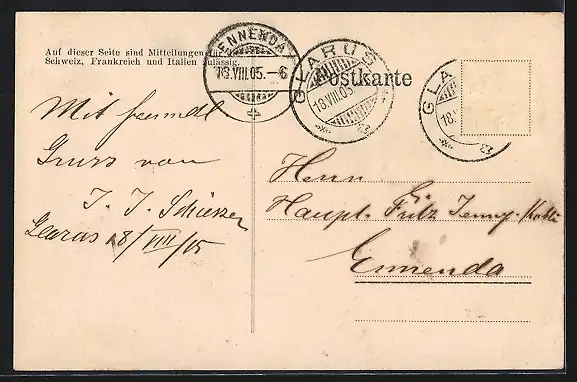 Auf dieser Seite sind Mitteilungen für
Schweiz, Frankreich und Italien zulässig.
ENNENDA
18.VIII.05.–6
GLARUS
18.VIII.05
Postkarte
GLA
18.
Mit freundl
Gruss von
J. J. Schiesser
Glarus 18/VIII/05
Herrn
Haupt. Fritz Jenny-
Ennenda